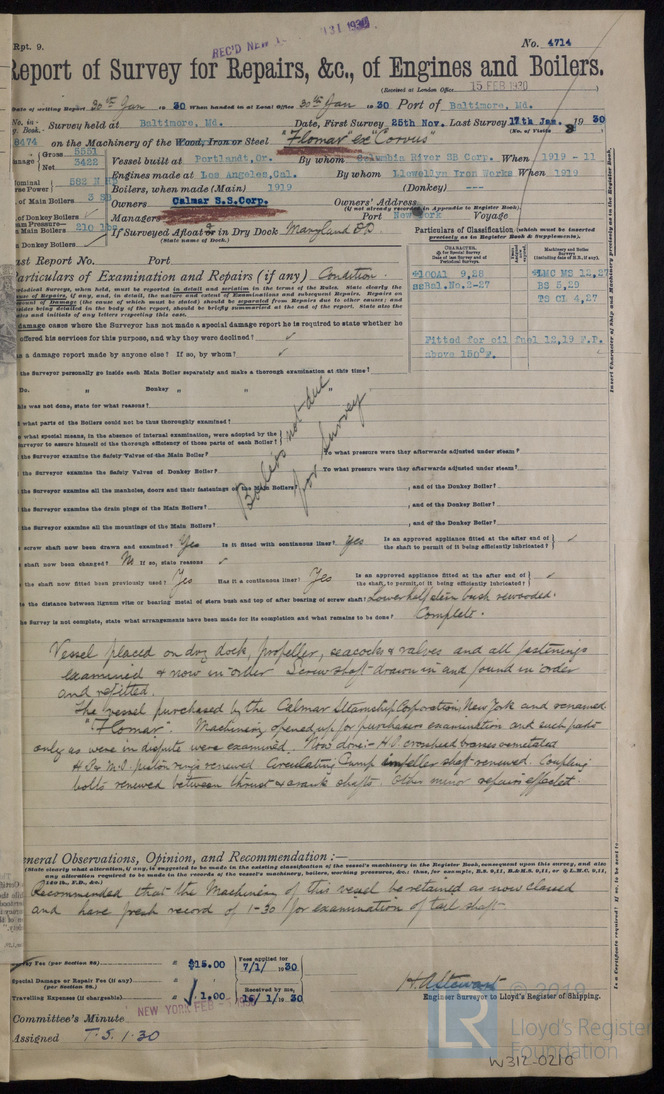 Rpt. 9.
REC'D NEW
No. 4714
Report of Survey for Repairs, &c., of Engines and Boilers.
(Received at London Office 15 FEB 1930
Date of writing Report 20th Jan 1930 When handed in at Local Office 20th Jan 1930 Port of Baltimore, Md.
No. in Survey held at Baltimore, Md. Date, First Survey 25th Nov. Last Survey 17th Jan. 1930
g. Book. (No. of Visits
8474 on the Machinery of the Wood, Iron or Steel "Flomar" ex "Corvus"
Gross 5551
Net 3422
Vessel built at Portland, Or. By whom Columbia River SB Corp. When 1919 - 11
Engines made at Los Angeles, Cal. By whom Llewellyn Iron Works When 1919
Boilers, when made (Main) 1919 (Donkey) ---
of Main Boilers 3 SB
Owners Calmar S.S.Corp. Owners' Address
(If not already recorded in Appendix to Register Book).
Managers Port New York Voyage
of Donkey Boilers
Main Boilers 210 lbs
If Surveyed Afloat or in Dry Dock Maryland D.D.
(State name of Dock.)
Donkey Boilers
Particulars of Classification (which must be inserted
precisely as in Register Book & Supplements).
Last Report No. Port
Particulars of Examination and Repairs (if any) Condition.
LOCAl 9,28
Bal.No.2-27
LMC MS 12,27
BS 5,29
TS CL 4,27
Fitted for oil fuel 12,19 F.P.
above 150°F.
damage cases where the Surveyor has not made a special damage report he is required to state whether he
offered his services for this purpose, and why they were declined?
s a damage report made by anyone else? If so, by whom?
the Surveyor personally go inside each Main Boiler separately and make a thorough examination at this time?
Do. " Donkey " "
his was not done, state for what reasons?
what parts of the Boilers could not be thus thoroughly examined?
what special means, in the absence of internal examination, were adopted by the
surveyor to assure himself of the thorough efficiency of those parts of each Boiler?
Boilers not due
for Survey
the Surveyor examine the Safety Valves of the Main Boiler? To what pressure were they afterwards adjusted under steam?
the Surveyor examine the Safety Valves of Donkey Boiler? To what pressure were they afterwards adjusted under steam?
the Surveyor examine all the manholes, doors and their fastenings of the Main Boilers? , and of the Donkey Boiler?
the Surveyor examine the drain plugs of the Main Boilers? , and of the Donkey Boiler?
the Surveyor examine all the mountings of the Main Boilers? , and of the Donkey Boiler?
screw shaft now been drawn and examined? Yes Is it fitted with continuous liner? Yes Is an approved appliance fitted at the after end of
the shaft to permit of it being efficiently lubricated?
shaft now been changed? No If so, state reasons
the shaft now fitted been previously used? Yes Has it a continuous liner? Yes Is an approved appliance fitted at the after end of
the shaft to permit of it being efficiently lubricated?
the distance between lignum vitæ or bearing metal of stern bush and top of after bearing of screw shaft? Lower half stern bush rewooded.
he Survey is not complete, state what arrangements have been made for its completion and what remains to be done? Complete.
Vessel placed on dry dock, propeller, seacocks & valves and all fastenings
examined & now in order Screw shaft drawn in and found in order
and refitted.
The vessel purchased by the Calmar Steamship Corporation New York and renamed
"Flomar". Machinery opened up for purchasers examination and such parts
only as were in dispute were examined. Now done:- H.P. crosshead brasses remetaled
H.P. & M.P. piston rings renewed. Circulating Pump impeller shaft renewed. Coupling
bolts renewed between thrust & crank shafts. Other minor repairs effected.
General Observations, Opinion, and Recommendation :—
(State clearly what alteration, if any, is suggested to be made in the existing classification of the vessel's machinery in the Register Book, consequent upon this survey, and also
any alteration required to be made in the records of the vessel's machinery, boilers, working pressures, &c.: thus, for example, B.S. 9,11, B.&M.S. 9,11, or L.M.C. 9,11,
140 lb., F.D., &c.)
Recommended that the Machinery of this vessel be retained as now classed
and have fresh record of 1-30 for examination of tail shaft
Survey Fee (per Section 29) $15.00 Fees applied for 7/1/1930
Special Damage or Repair Fee (if any)
(per Section 28.)
Travelling Expenses (if chargeable) 1.00 Received by me, 16/1/1930
H. A. Stewart
Engineer Surveyor to Lloyd's Register of Shipping.
Committee's Minute NEW YORK FEB
Assigned T.S. 1.30
© 2019
LR
Lloyd's Register
Foundation
W312-0210